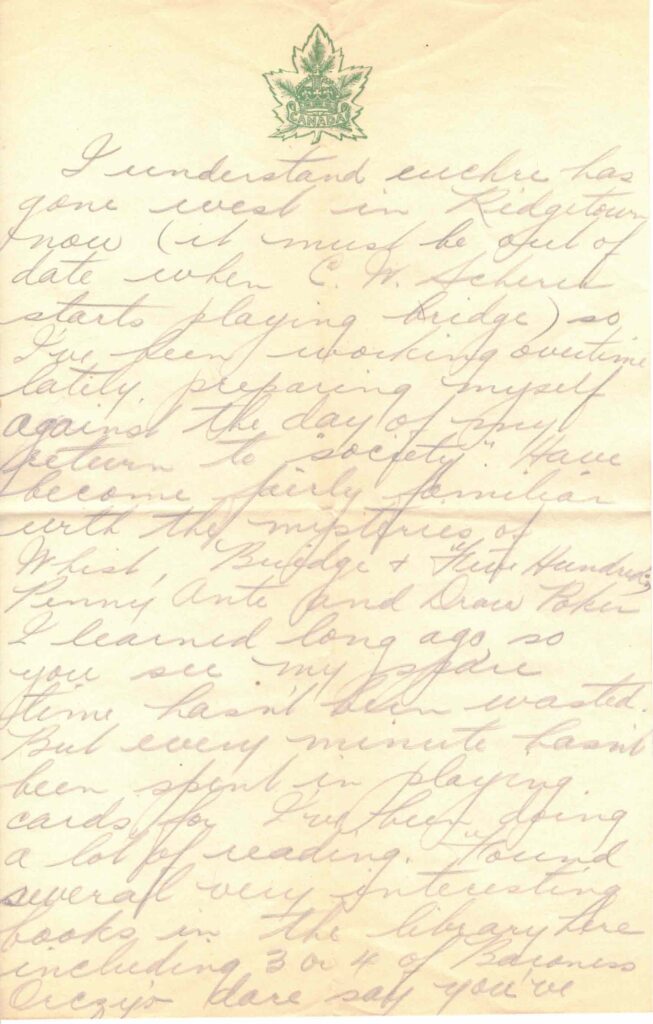 CANADA
I understand euchre has
gone west in Ridgetown
now (it must be out of
date when C. W.
starts playing bridge) so
I've been working overtime
lately, preparing myself
against the day of my
return to "society". Have
become fairly familiar
with the mysteries of
Whist, Bridge + "Five Hundred";
Penny Ante and Draw Poker
I learned long ago, so
you see my spare
time hasn't been wasted.
But every minute hasn't
been spent in playing
cards, for I've been doing
a lot of reading. Found
several very interesting
books in the library here
including 3 or 4 of Baroness
Orczy's dare say you've